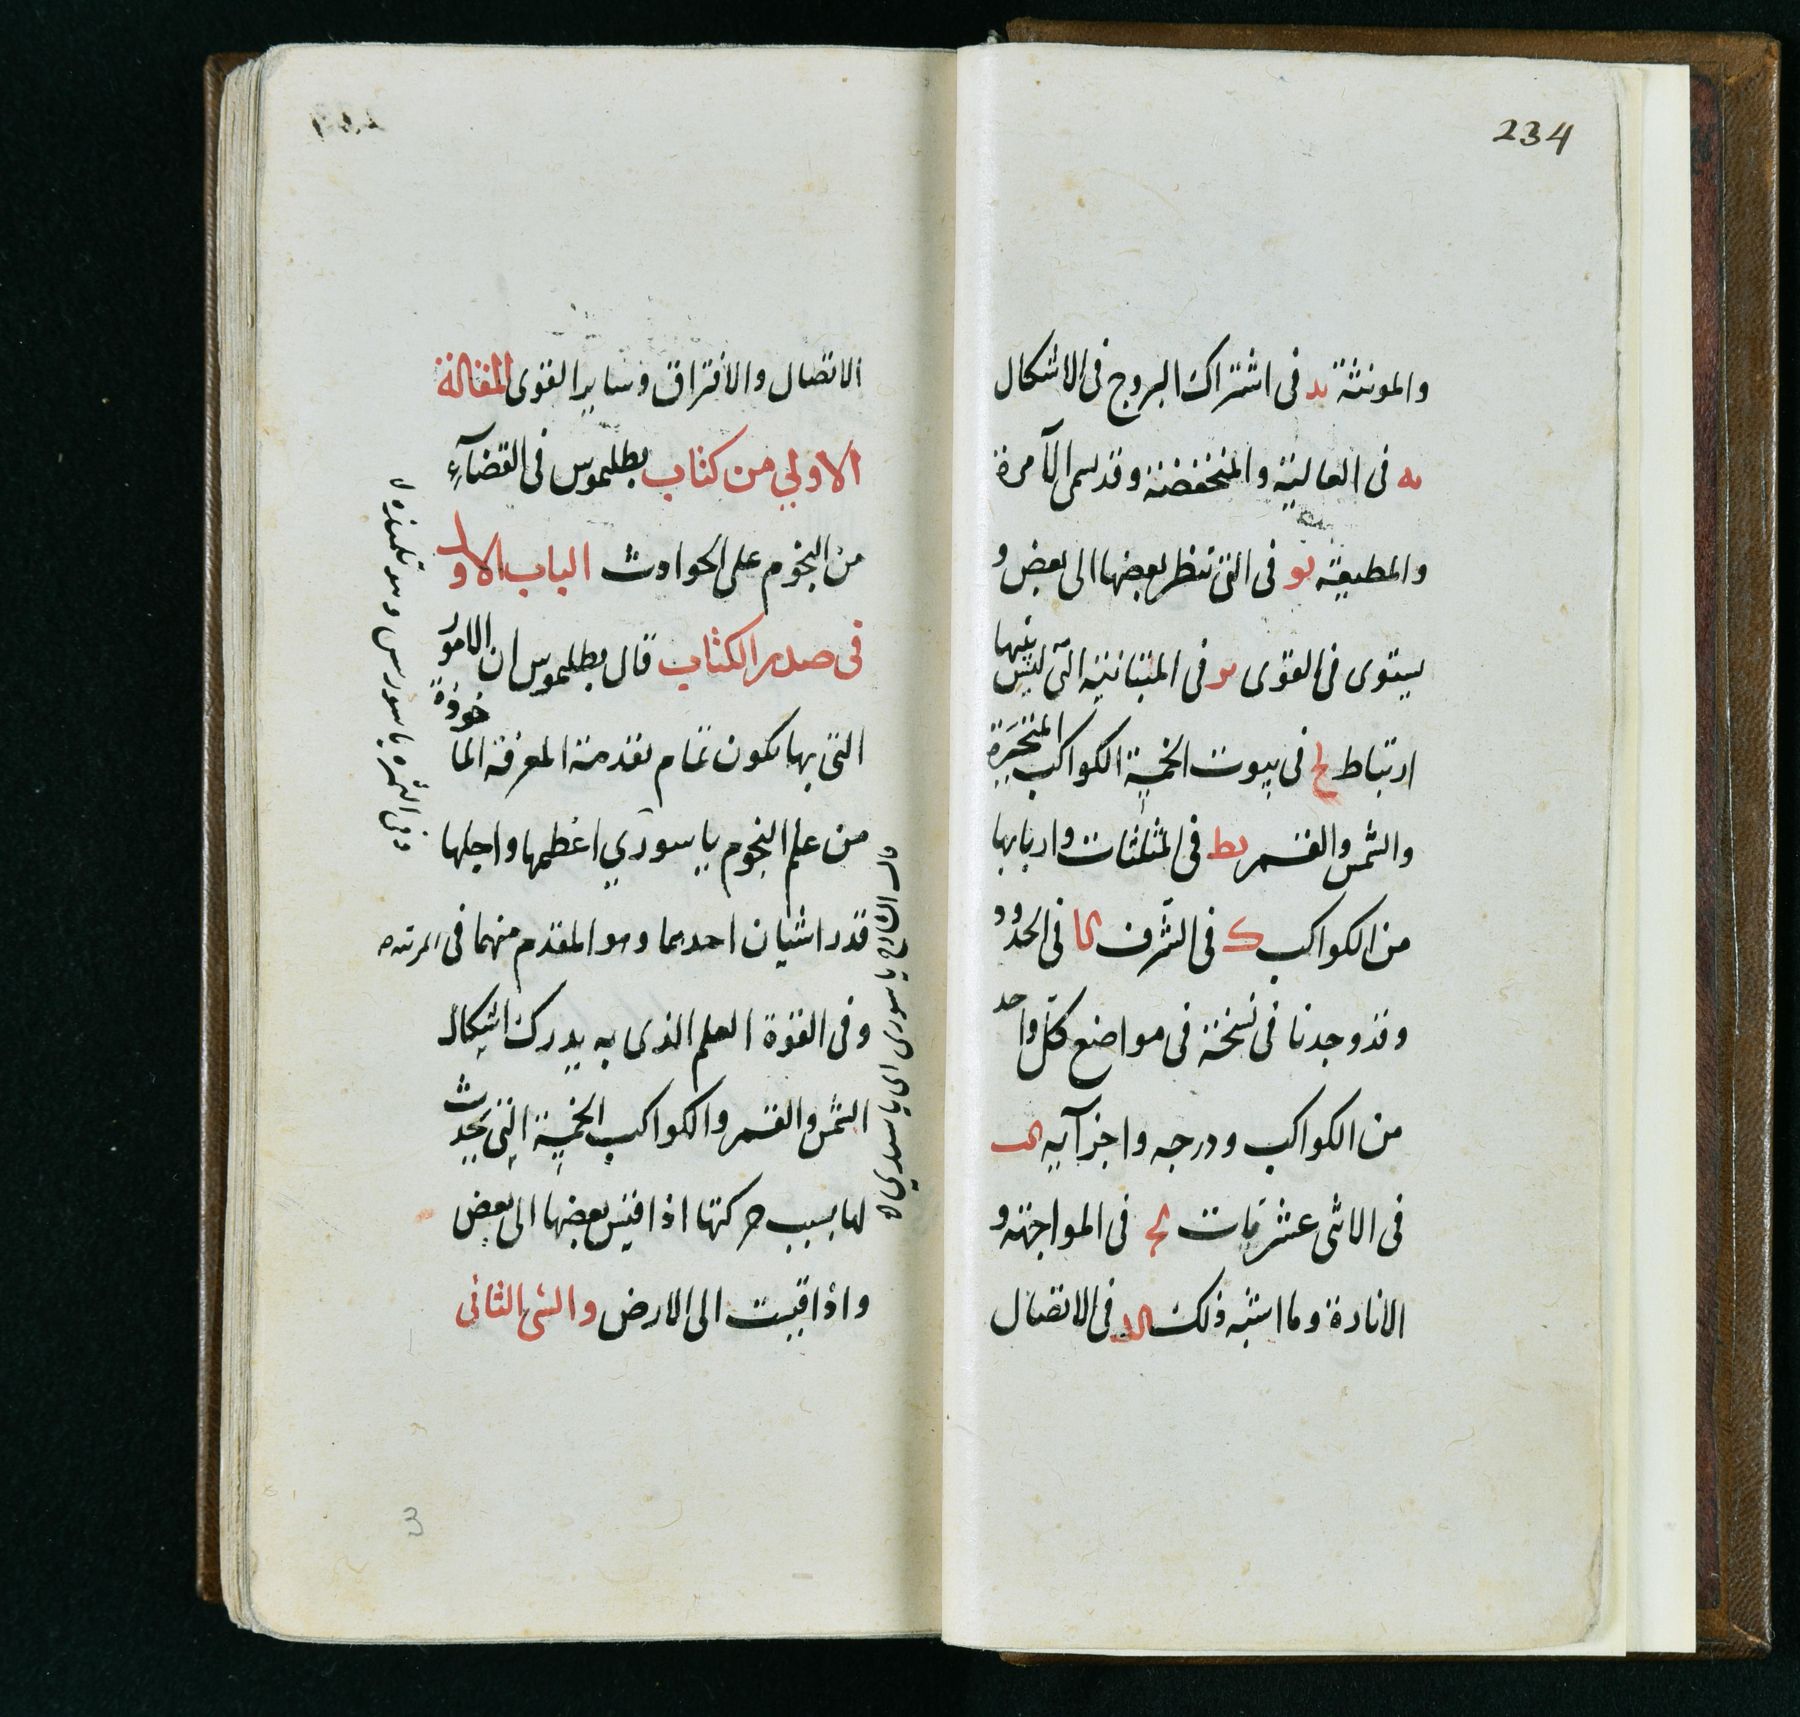 234
والمونثة يد في اشتراك البروج في الاشكال
يه في العالية والمنخفضة وقد يسمى الآمرة
والمطيعة يو في التي تنظر بعضها الى بعض و
يستوى في القوى يز في المتباينة التي ليس بينها
ارتباط يح في بيوت الخمسة الكواكب المتحيرة
والشمس والقمر يط في المثلثات واربابها
من الكواكب ك في الشرف كا في الحدود
وقد وجدنا في نسخة في مواضع كل واحد
من الكواكب ودرجه واجزآيه كب
في الاثنى عشريات كج في المواجهة و
الانارة وما اشبه ذلك كد في الاتصال
الاتصال والافتراق وساير القوى المقالة
الاولى من كتاب بطلميوس في القضآء
من النجوم على الحوادث الباب الاول
في صدر الكتاب قال بطلميوس ان الامور
التي بها يكون تمام تقدمة المعرفة الماخوذة
من علم النجوم يا سوري اعظمها واجلها
قدر اشيان احدهما وهو المقدم منهما في المرتبه
وفي القوة العلم الذي به يدرك اشكال
الشمس والقمر والكواكب الخمسة التي تحدث
لها بسبب حركتها اذا قيس بعضها الى بعض
واذا قيست الى الارض والشي الثاني
قال الشارح يا سوري اي يا سيدي
وفي الثمرة يا سورس وهو تلميذه
3